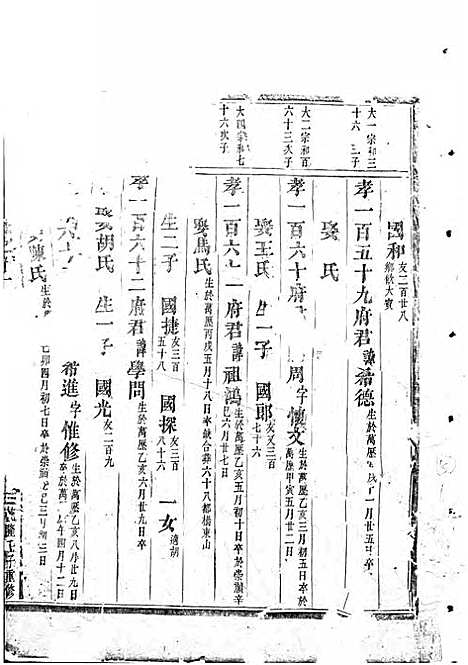 大一宗和三
十六 三子
大二宗和百
六十三次子
大四宗和七
十六次子
國和 友二百廿八
鄉飲大賓
孝一百五十九府君諱希德 生於萬歷
月廿五日卒
娶 氏
孝一百六十府君 周字懷文 生於萬歷乙亥三月初五日卒於
萬歷甲寅五月廿二日
娶王氏 生一子 國郎 友又三百
七十六
孝一百六 一府君諱祖鴻 生於萬歷乙亥五月初十日卒於崇禎辛
巳六月廿七日
娶馬氏 生於萬歷丙戌五月十八日卒 缺合葬六十八都橋東山
生二子 國捷 友三百
五十八 國探 友三百
八十六 一女 適胡
孝一百六十二府君諱學問 生於萬歷乙亥六月廿九日卒
娶胡氏 生一子 國光 友二百九
希進字惟修 生於萬歷乙亥八月廿九日
卒於萬 午四月十二日
陳氏 生於
卯四月初七日卒於崇禎 巳三月初三日
重修